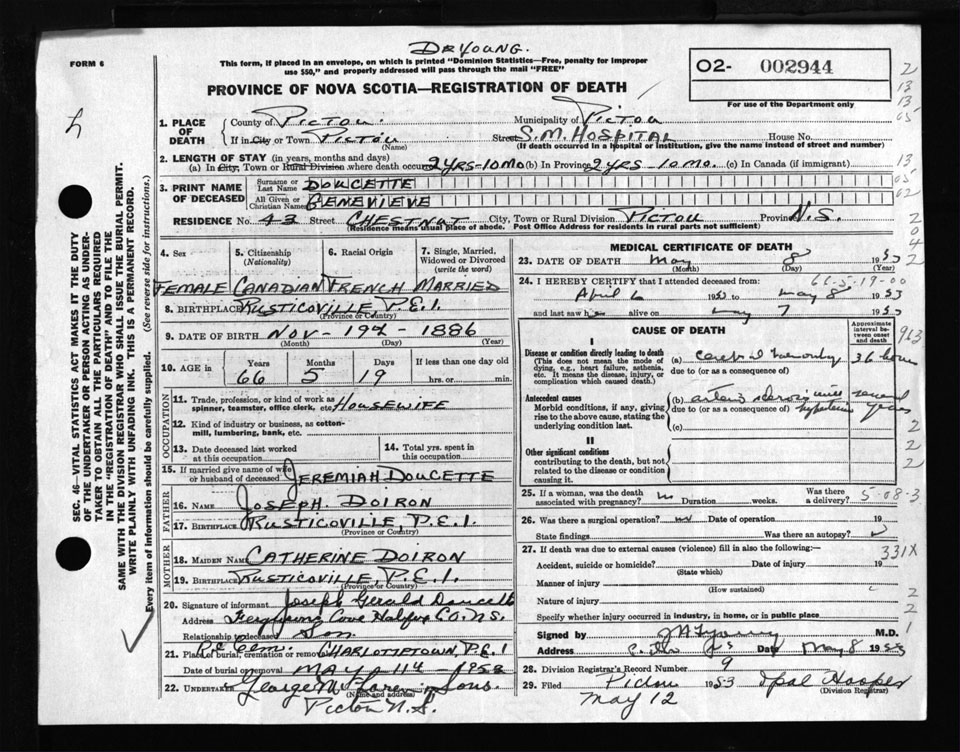 Dr Young.
FORM 6
This form, if placed in an envelope, on which is printed "Dominion Statistics—Free, penalty for improper
use $50," and properly addressed will pass through the mail "FREE"
O2- 002944
For use of the Department only.
PROVINCE OF NOVA SCOTIA—REGISTRATION OF DEATH
1. PLACE OF DEATH
County of Pictou. Municipality of Pictou
If in City or Town Pictou (Name) Street S.M. HOSPITAL House No.
(If death occurred in a hospital or institution, give the name instead of street and number)
2. LENGTH OF STAY (in years, months and days)
(a) In City, Town or Rural Division where death occurred 2 yrs - 10 mo (b) In Province 2 yrs - 10 mo. (c) In Canada (if immigrant)
3. PRINT NAME OF DECEASED
Surname or Last Name DOUCETTE
All Given or Christian Names GENEVIEVE
RESIDENCE No. 43 Street CHESTNUT City, Town or Rural Division PICTOU Province N.S.
(Residence means usual place of abode. Post Office Address for residents in rural parts not sufficient)
4. Sex 5. Citizenship (Nationality) 6. Racial Origin 7. Single, Married, Widowed or Divorced (write the word)
FEMALE CANADIAN FRENCH MARRIED
8. BIRTHPLACE RUSTICOVILLE P.E.I.
(Province or Country)
9. DATE OF BIRTH NOV - 19 - 1886
(Month) (Day) (Year)
10. AGE in Years Months Days If less than one day old
66 5 19 hrs. or min.
OCCUPATION
11. Trade, profession, or kind of work as spinner, teamster, office clerk, etc. HOUSEWIFE
12. Kind of industry or business, as cotton-mill, lumbering, bank, etc.
13. Date deceased last worked at this occupation
14. Total yrs. spent in this occupation
15. If married give name of wife or husband of deceased JEREMIAH DOUCETTE
FATHER
16. NAME JOSEPH DOIRON
17. BIRTHPLACE RUSTICOVILLE, P.E.I.
(Province or Country)
MOTHER
18. MAIDEN NAME CATHERINE DOIRON
19. BIRTHPLACE RUSTICOVILLE, P.E.I.
(Province or Country)
20. Signature of informant Joseph Gerald Doucette
Address Cove Halifax Co. N.S.
Relationship to deceased Son
21. Place of burial, cremation or removal R.C. Cem. CHARLOTTETOWN, P.E.I
Date of burial or removal MAY 11 - 1953
22. Undertaker George Sons.
(Name and address)
Pictou N.S.
MEDICAL CERTIFICATE OF DEATH
23. DATE OF DEATH May 8 1953
(Month) (Day) (Year)
24. I HEREBY CERTIFY that I attended deceased from:
April 6 1953 to May 8 1953
and last saw h alive on May 7 1953
CAUSE OF DEATH
Approximate interval between onset and death
I
Disease or condition directly leading to death
(This does not mean the mode of dying, e.g., heart failure, asthenia, etc. It means the disease, injury, or complication which caused death.
(a) cerebral hemorrhage 36 hours
due to (or as a consequence of)
Antecedent causes
Morbid conditions, if any, giving rise to the above cause, stating the underlying condition last.
(b) arterio sclerosis with several
due to (or as a consequence of) hypertension years
(c)
II
Other significant conditions
contributing to the death, but not related to the disease or condition causing it.
25. If a woman, was the death associated with pregnancy? no Duration weeks. Was there a delivery?
5-08-3
26. Was there a surgical operation? no Date of operation 19
State findings Was there an autopsy?
27. If death was due to external causes (violence) fill in also the following:—
331X
Accident, suicide or homicide? (State which) Date of injury 19
Manner of injury
(How sustained)
Nature of injury
Specify whether injury occurred in industry, in home, or in public place
Signed by M.D.
Address Date May 8 1953
28. Division Registrar's Record Number 9
29. Filed Pictou 1953 Opal Hooper
May 12 (Division Registrar)
SEC. 46—VITAL STATISTICS ACT MAKES IT THE DUTY
OF THE UNDERTAKER OR PERSON ACTING AS UNDER-
TAKER TO OBTAIN ALL THE PARTICULARS REQUIRED
IN THE "REGISTRATION OF DEATH" AND TO FILE THE
SAME WITH THE DIVISION REGISTRAR WHO SHALL ISSUE THE BURIAL PERMIT.
WRITE PLAINLY WITH UNFADING INK. THIS IS A PERMANENT RECORD.
Every item of information should be carefully supplied. (See reverse side for instructions.)